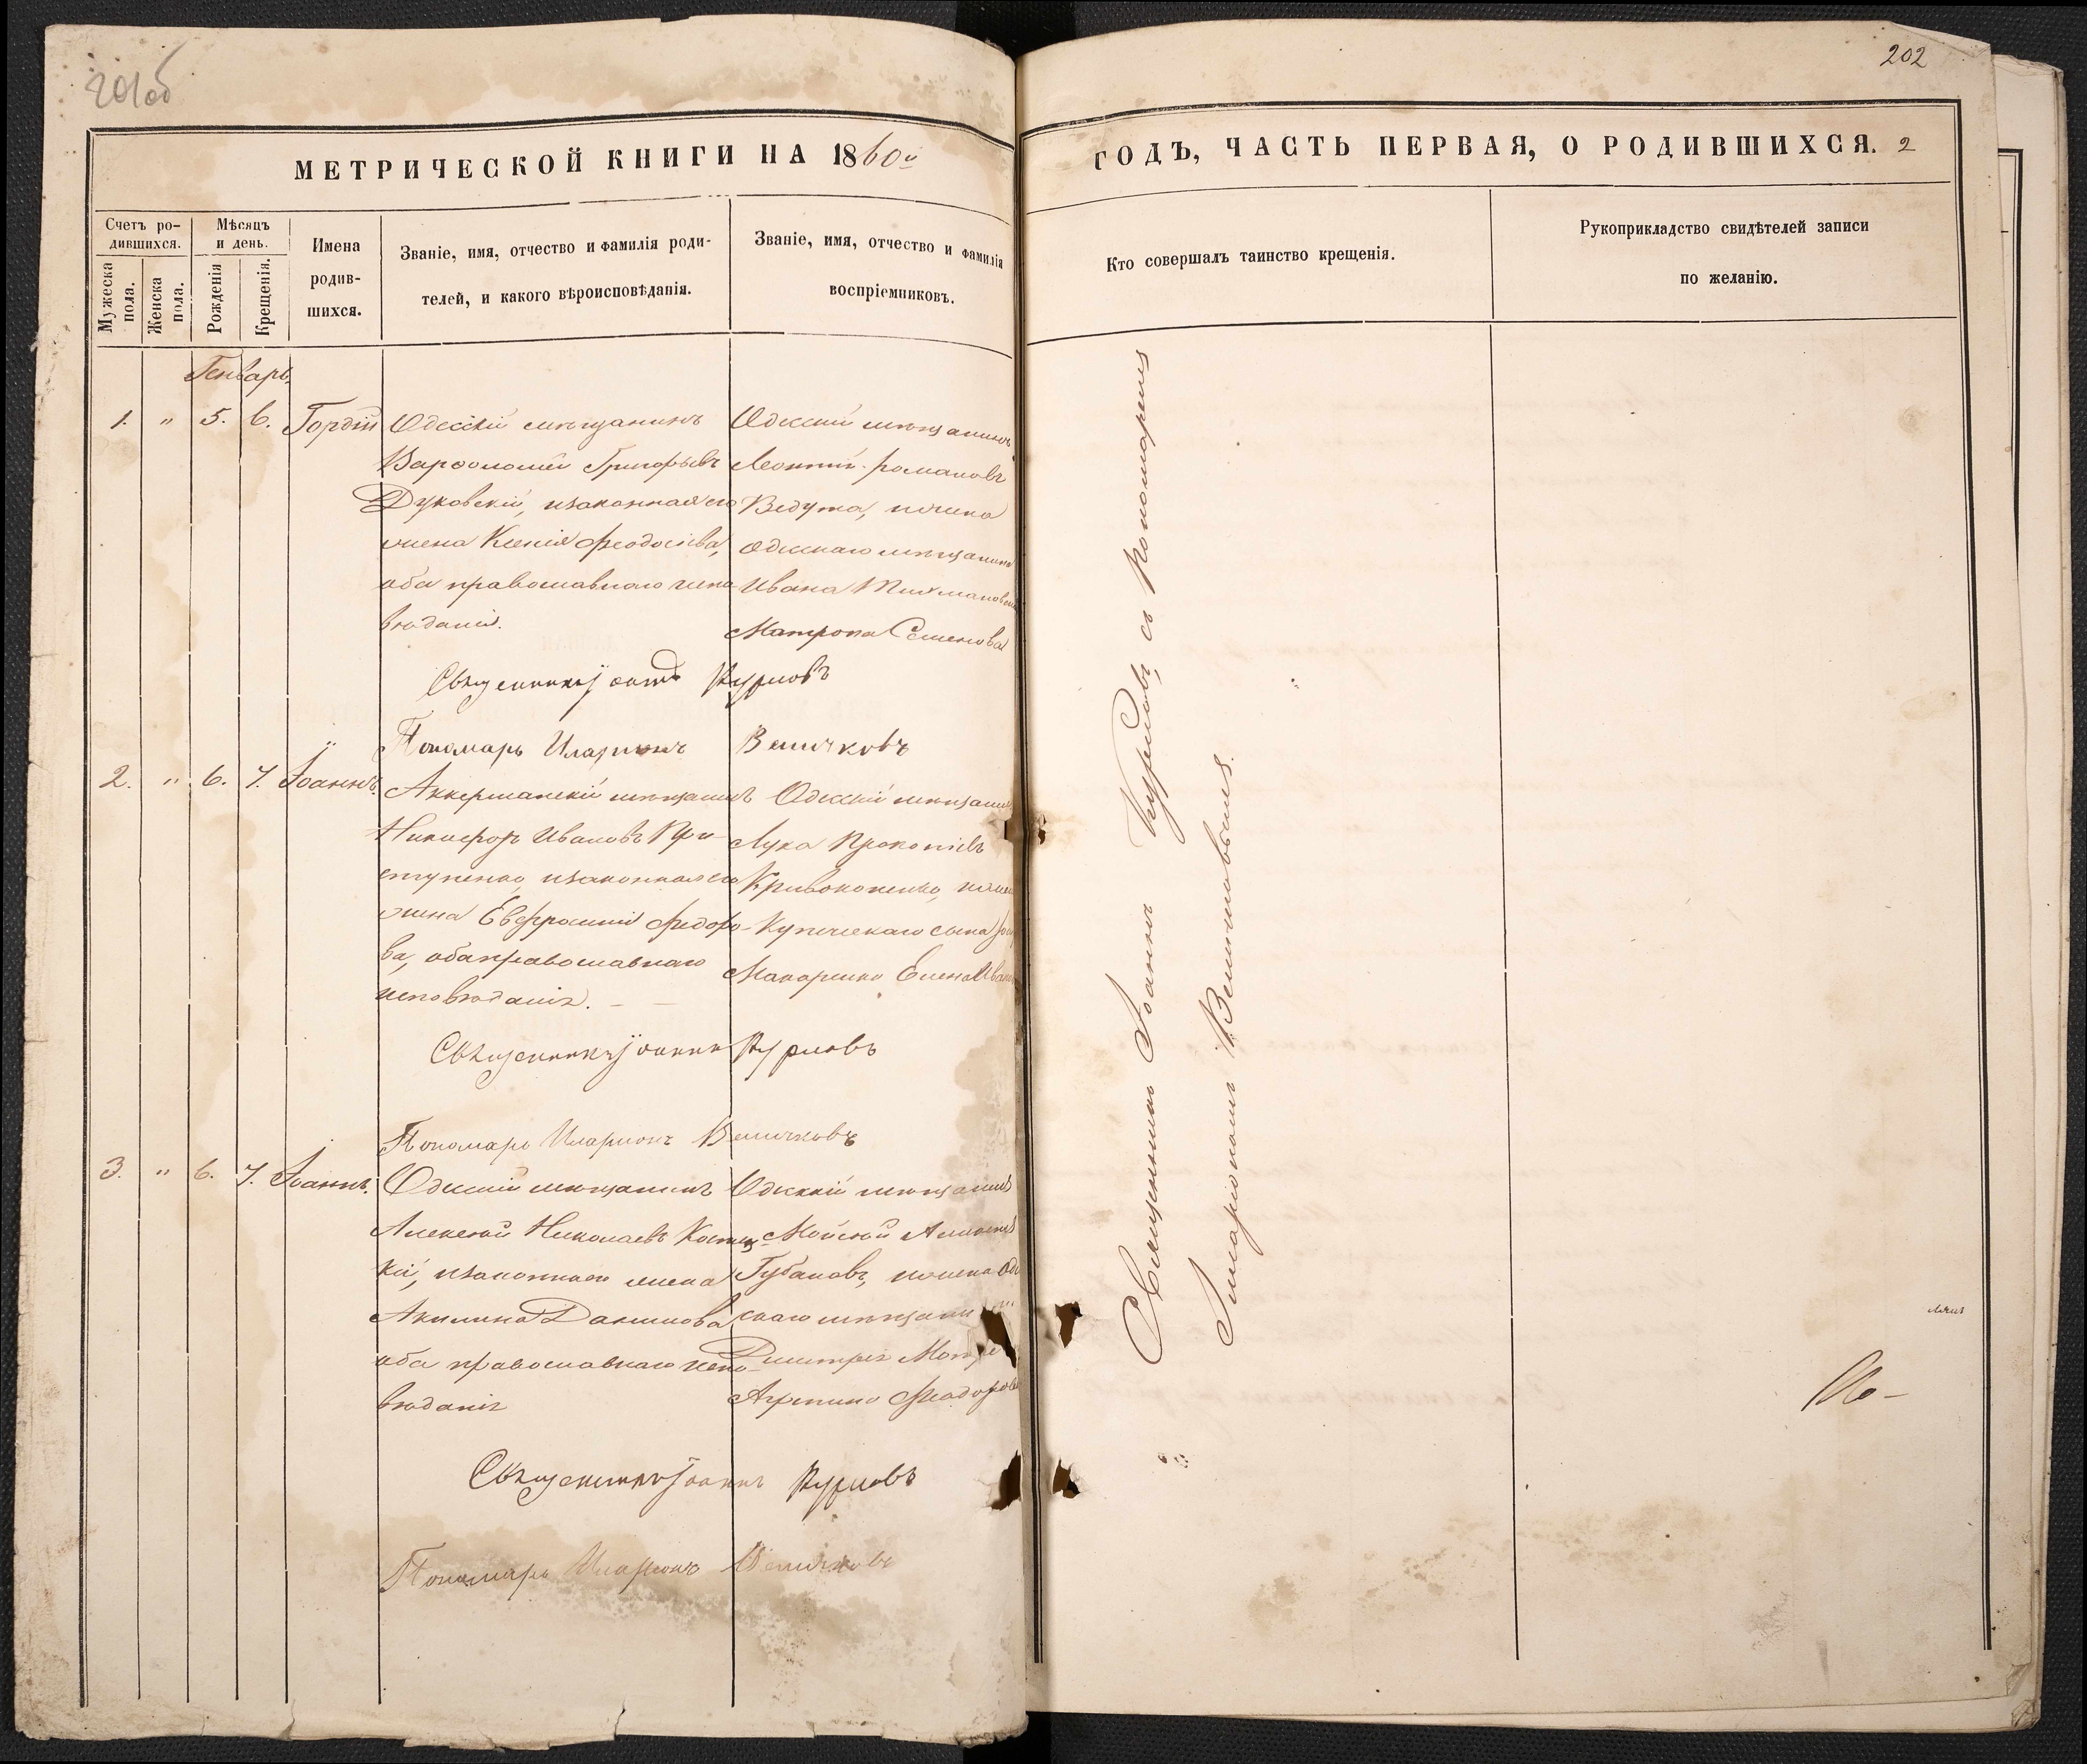 201об
МЕТРИЧЕСКОЙ КНИГИ НА 1860й
Счетъ ро-
дившихся.
Мужеска пола.
Женска пола.
Мѣсяцъ
и день.
Рожденія
Крещенія.
Имена
родив-
шихся.
Званіе, имя, отчество и фамилія роди-
телей, и какого вѣроисповѣданія.
Званіе, имя, отчество и фамилія
воспріемниковъ.
Генварь
1. " 5. 6. Гордій
Одесскій мѣщанинъ
Варѳоломей Григорьевъ
Духовскій, и законная его
жена Ксенія Феодосіева,
оба православнаго испо-
вѣданія.
Одесскій мѣщанинъ
Леонтій Романовъ
Ведута, и жена
одесскаго мѣщанина
Ивана
Матрона Семенова
Священникъ Іоаннъ Курловъ
Пономарь Иларіонъ Величковъ
2. " 6. 7. Іоаннъ.
Аккерманскій мѣщанинъ
Никифоръ Ивановъ При-
ступенко, и законная его
жена Евфросинія Федоро-
ва, оба православнаго
исповѣданія.
Одесскій мѣщанинъ
Лука Прокопіевъ
Кривоконенко, и жена
Купеческаго сына
Макаренко Елена Иванова
Священникъ Іоаннъ Курловъ
Пономарь Иларіонъ Величковъ
3. " 6. 7. Іоаннъ.
Одесскій мѣщанинъ
Алексей Николаевъ
кій, и законная жена
Акилина Данилова
оба православнаго испо-
вѣданія
Одесскій мѣщанинъ
Мойсей
Губановъ, и жена Одес
скаго мѣщанина
Димитрія
Агрипина Феодорова
Священникъ Іоаннъ Курловъ
Пономарь Иларіонъ Величковъ
202
ГОДЪ, ЧАСТЬ ПЕРВАЯ, О РОДИВШИХСЯ. 2
Кто совершалъ таинство крещенія.
Рукоприкладство свидѣтелей записи
по желанію.
Священникъ Іоаннъ Курловъ, съ Пономаремъ
Иларіономъ Величковымъ.